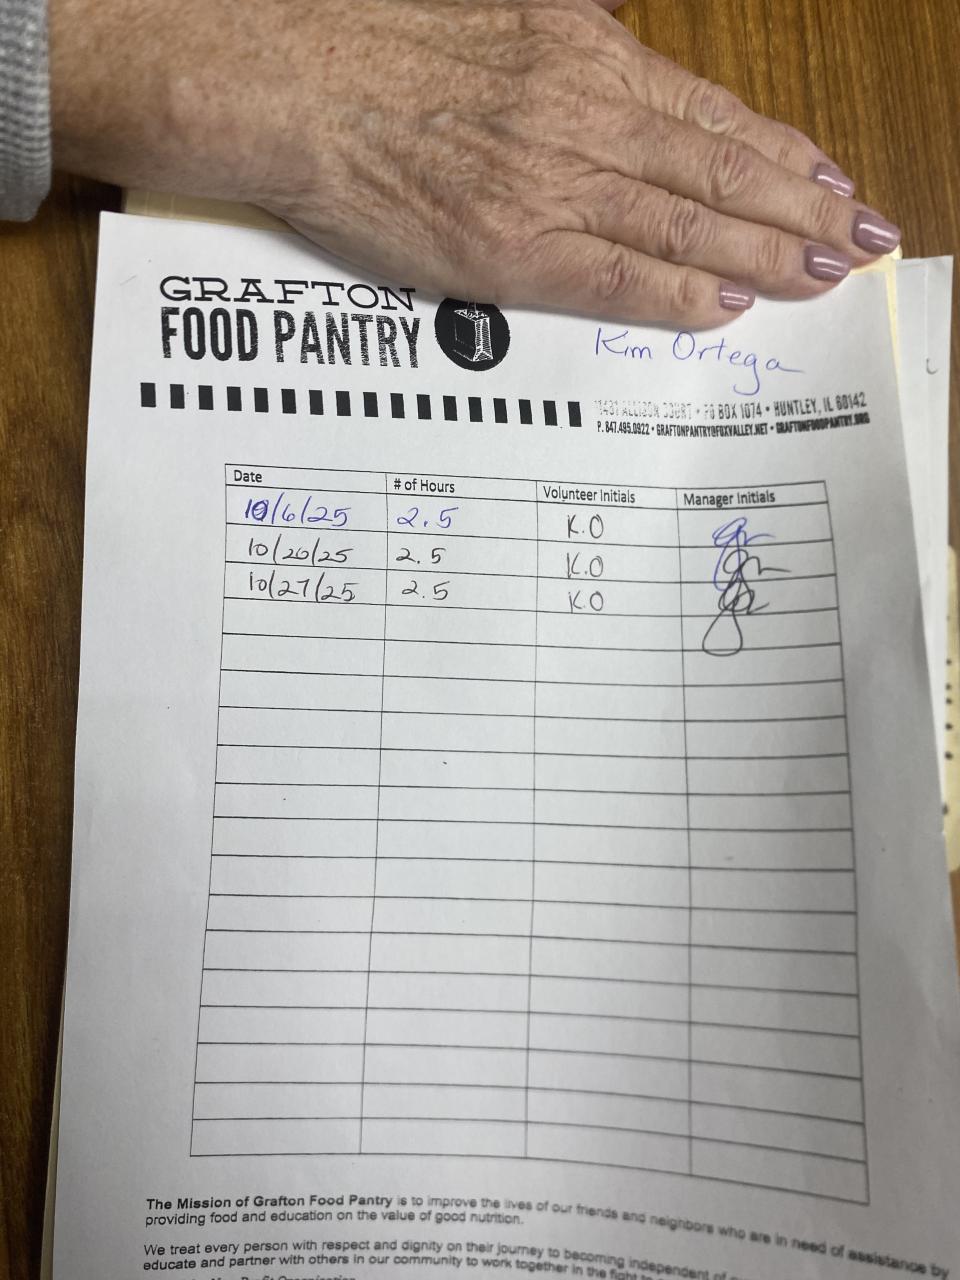 GRAFTON
FOOD PANTRY
Kim Ortega
11431 ALLISON COURT • PO BOX 1074 • HUNTLEY, IL 60142
P. 847.495.0922 • GRAFTONPANTRY@FOXVALLEY.NET • GRAFTONFOODPANTRY.ORG
Date # of Hours Volunteer Initials Manager Initials
10/6/25 2.5 K.O
10/20/25 2.5 K.O
10/27/25 2.5 K.O
The Mission of Grafton Food Pantry is to improve the lives of our friends and neighbors who are in need of assistance by
providing food and education on the value of good nutrition.
We treat every person with respect and dignity on their journey to becoming independent of
educate and partner with others in our community to work together in the fight to